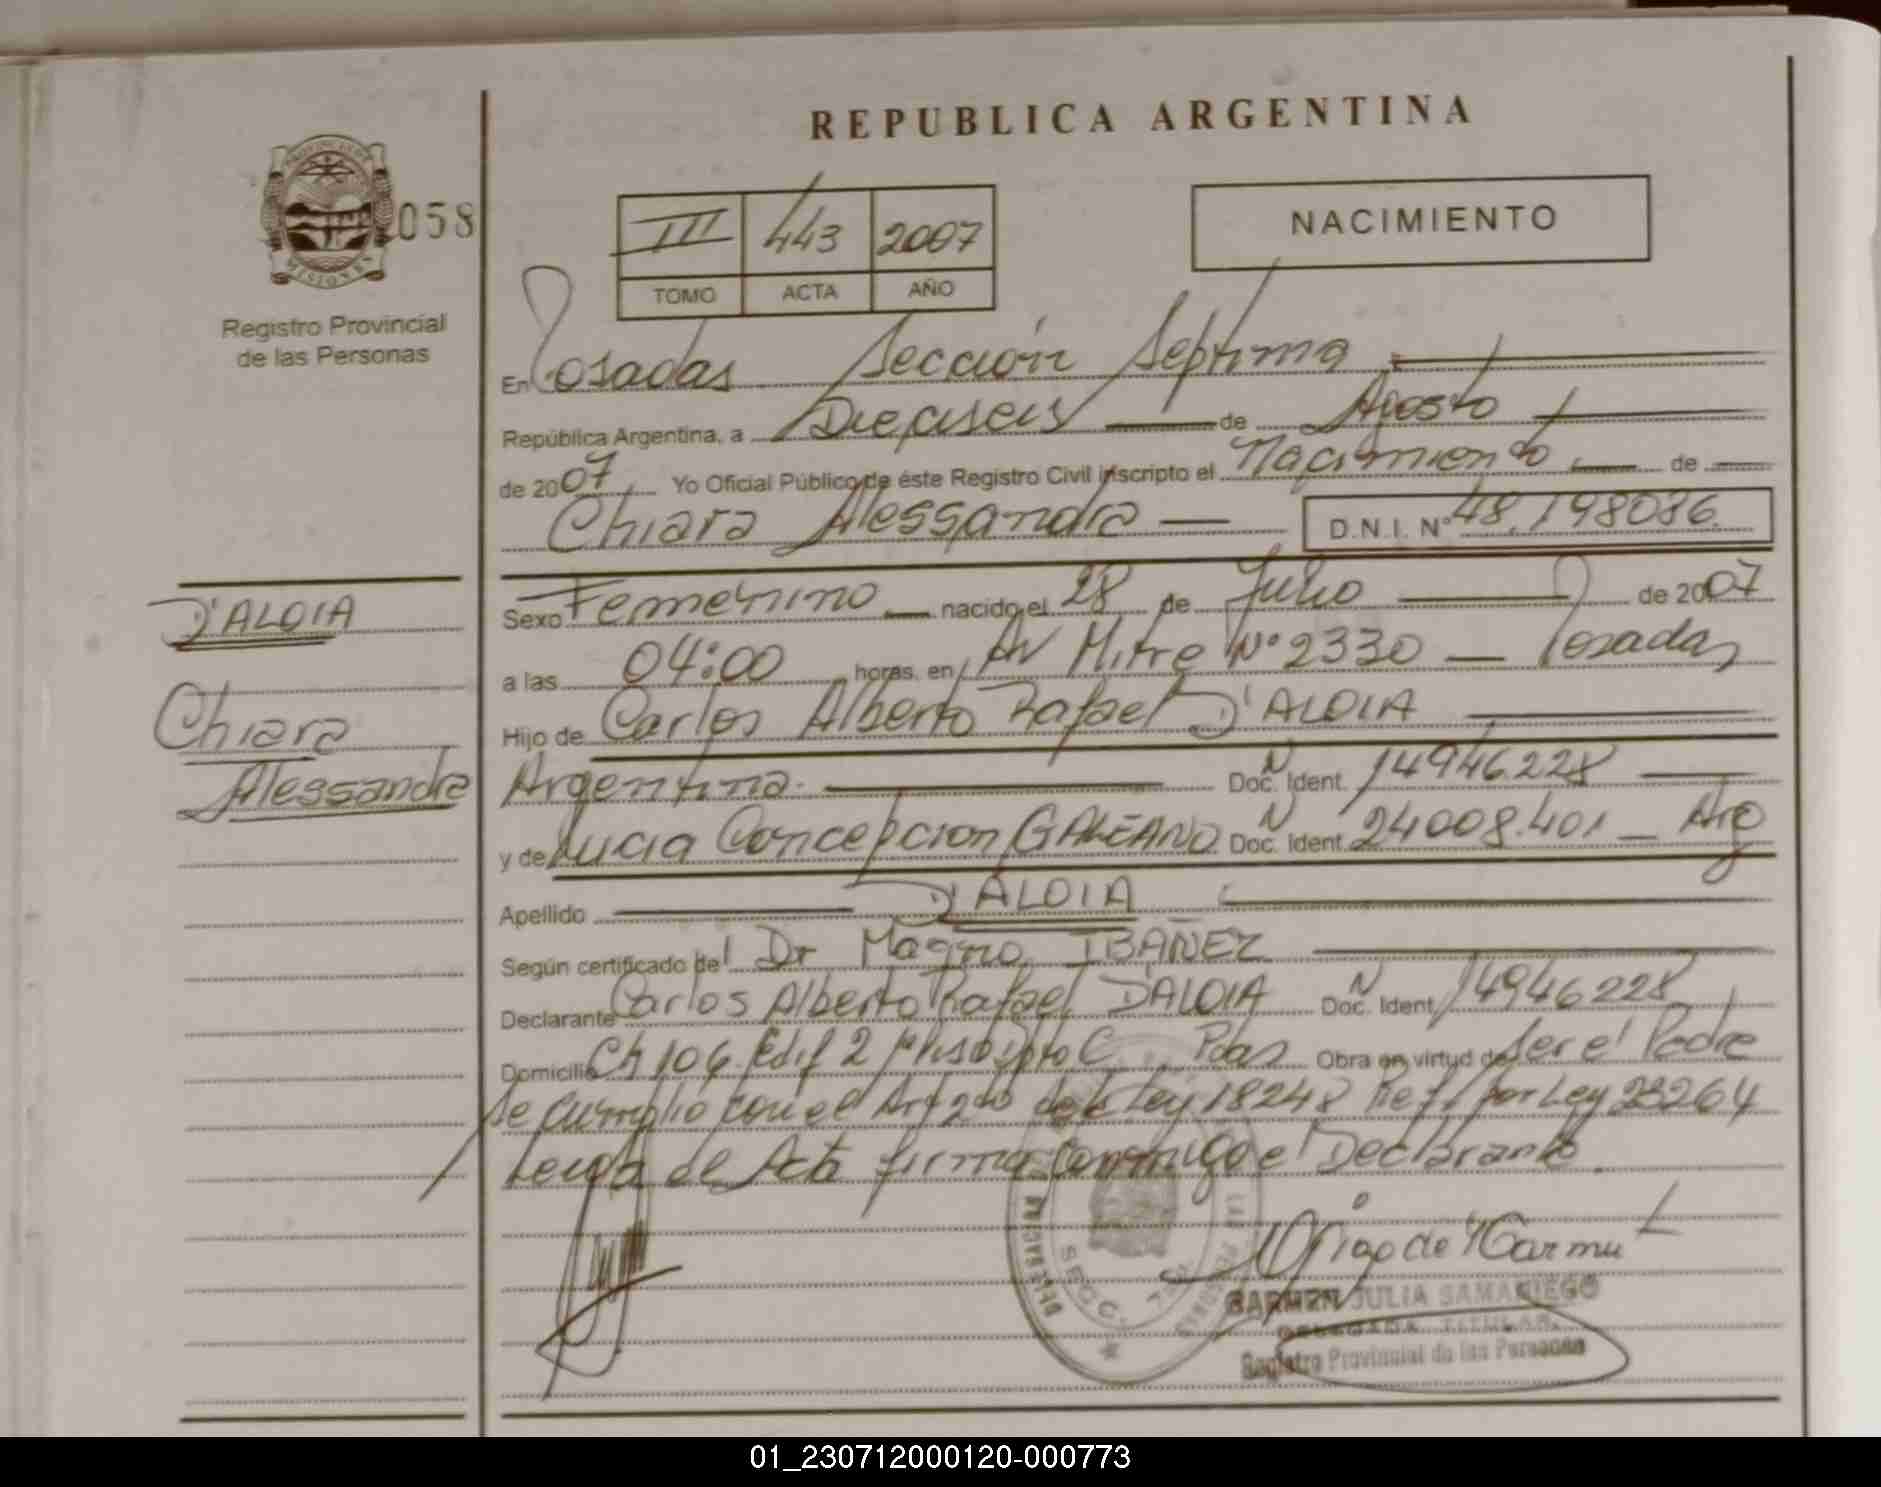 REPUBLICA ARGENTINA
PROVINCIA DE
MISIONES
058
Registro Provincial
de las Personas
III 443 2007
TOMO ACTA AÑO
NACIMIENTO
En Posadas Sección Septima
República Argentina, a Dieciseis de Agosto
de 2007 Yo Oficial Público de éste Registro Civil inscripto el Nacimiento de
Chiara Alessandra D.N.I. Nº 48.198036
D'ALOIA
Chiara
Alessandra
Sexo Femenino nacido el 28 de Julio de 2007
a las 04:00 horas, en Av Mitre Nº 2330 Posadas
Hijo de Carlos Alberto Rafael D'ALOIA
Argentina Doc. N Ident. 14946228
y de Lucia Concepcion GALEANO Doc. N Ident. 24008.401 Arg
Apellido D'ALOIA
Según certificado del Dr Magno IBAÑEZ
Declarante Carlos Alberto Rafael D'ALOIA Doc. N Ident. 14946228
Domicilio Ch 106 Edif 2 Piso Dpto C Pdas Obra en virtud de Ser el Padre
Se cumplio con el Art 2do de la Ley 18248 Ref. por Ley 23264
Leida el Acta firma conmigo el Declarante.
SECC. 7
CARMEN JULIA SAMANIEGO
DELEGADA TITULAR
Registro Provincial de las Personas
01_230712000120-000773